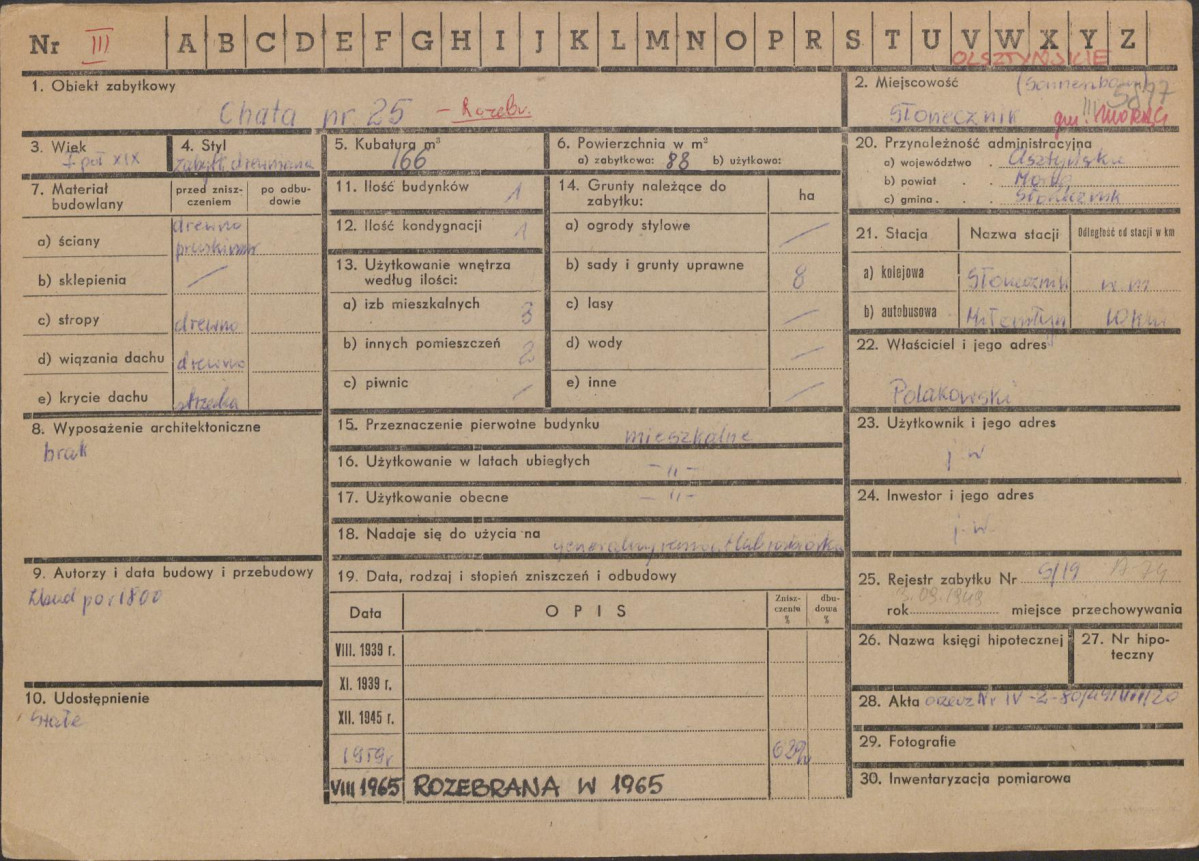 Nr III A B C D E F G H I J K L M N O P R S T U V W X Y Z
OLSZTYŃSKIE
1. Obiekt zabytkowy
Chata nr. 25 - Rozebr.
2. Miejscowość (Sonnenborn)
5877
Słonecznik gm. MORĄG
3. Wiek
4. Styl
5. Kubatura m³
166
6. Powierzchnia w m²
a) zabytkowa: 88 b) użytkowa:
7. Materiał budowlany
przed zniszczeniem
po odbudowie
a) ściany drewno
b) sklepienia /
c) stropy drewno
d) wiązania dachu drewno
e) krycie dachu strzecha
8. Wyposażenie architektoniczne
brak
9. Autorzy i data budowy i przebudowy
10. Udostępnienie
stałe
11. Ilość budynków 1
12. Ilość kondygnacji 1
13. Użytkowanie wnętrza
według ilości:
a) izb mieszkalnych 3
b) innych pomieszczeń 2
c) piwnic /
14. Grunty należące do
zabytku: ha
a) ogrody stylowe /
b) sady i grunty uprawne 8
c) lasy /
d) wody /
e) inne /
15. Przeznaczenie pierwotne budynku mieszkalne
16. Użytkowanie w latach ubiegłych -"-
17. Użytkowanie obecne -"-
18. Nadaje się do użycia na
19. Data, rodzaj i stopień zniszczeń i odbudowy
Data OPIS Zniszczenia % dbudowa %
VIII. 1939 r.
XI. 1939 r.
XII. 1945 r.
1959r
VIII 1965 ROZEBRANA W 1965
20. Przynależność administracyjna
a) województwo . Olsztyńskie
b) powiat . .
c) gmina . . Słonecznik
21. Stacja Nazwa stacji Odległość od stacji w km
a) kolejowa Słonecznik w m
b) autobusowa Miłomłyn 10 km
22. Właściciel i jego adres
Polakowski
23. Użytkownik i jego adres
j. w.
24. Inwestor i jego adres
j. w.
25. Rejestr zabytku Nr
rok 3.09.1949 miejsce przechowywania
26. Nazwa księgi hipotecznej
27. Nr hipoteczny
28. Akta
29. Fotografie
30. Inwentaryzacja pomiarowa